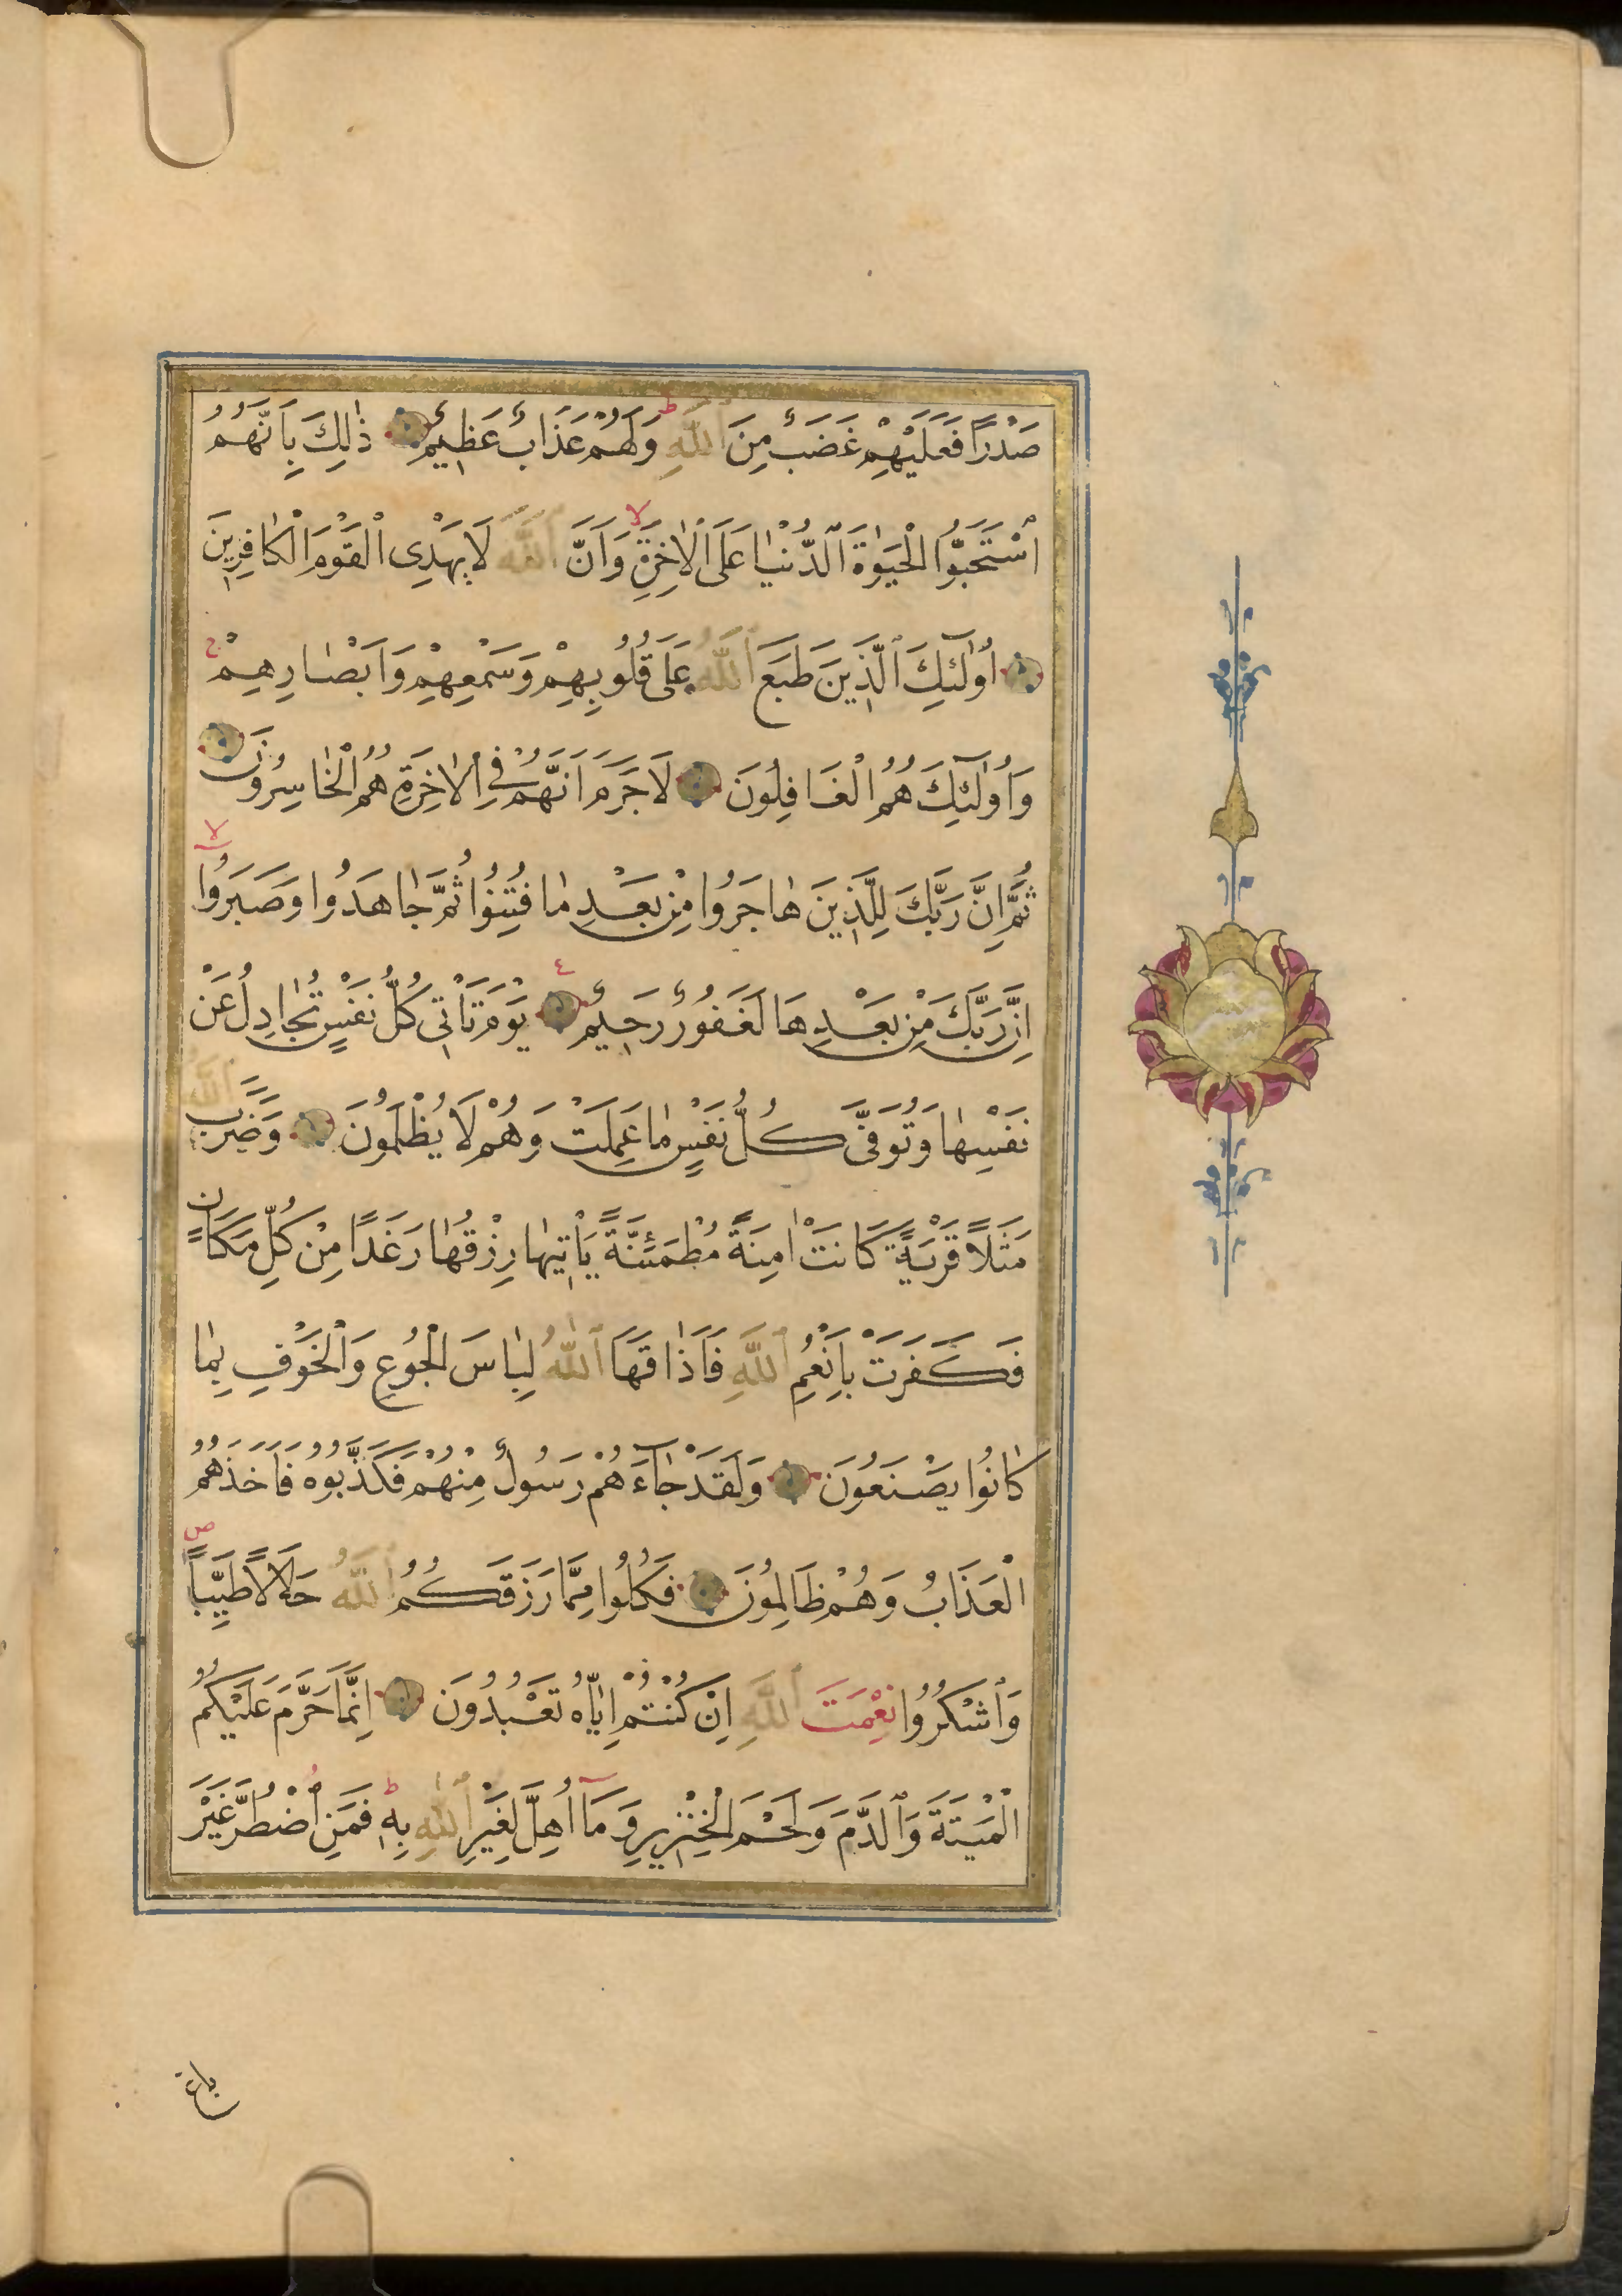 صَدْرًا فَعَلَيْهِمْ غَضَبٌ مِنَ ٱللَّهِ ط وَلَهُمْ عَذَابٌ عَظِيمٌ ذٰلِكَ بِاَنَّهُمُ
ٱسْتَحَبُّوا ٱلْحَيَوٰةَ ٱلدُّنْيَا عَلَى ٱلْاٰخِرَةِ لا وَاَنَّ ٱللَّهَ لَا يَهْدِى ٱلْقَوْمَ ٱلْكَافِرِينَ
اُولٰٓئِكَ ٱلَّذِينَ طَبَعَ ٱللَّهُ عَلَى قُلُوبِهِمْ وَسَمْعِهِمْ وَاَبْصَارِهِمْ ج
وَاُولٰٓئِكَ هُمُ ٱلْغَافِلُونَ لَا جَرَمَ اَنَّهُمْ فِى ٱلْاٰخِرَةِ هُمُ ٱلْخَاسِرُونَ
ثُمَّ اِنَّ رَبَّكَ لِلَّذِينَ هَاجَرُوا مِنْ بَعْدِ مَا فُتِنُوا ثُمَّ جَاهَدُوا وَصَبَرُوا لا
اِنَّ رَبَّكَ مِنْ بَعْدِهَا لَغَفُورٌ رَحِيمٌ ع يَوْمَ تَاْتِى كُلُّ نَفْسٍ تُجَادِلُ عَنْ
نَفْسِهَا وَتُوَفَّى كُلُّ نَفْسٍ مَا عَمِلَتْ وَهُمْ لَا يُظْلَمُونَ وَضَرَبَ ٱللَّهُ
مَثَلًا قَرْيَةً كَانَتْ اٰمِنَةً مُطْمَئِنَّةً يَاْتِيهَا رِزْقُهَا رَغَدًا مِنْ كُلِّ مَكَانٍ
فَكَفَرَتْ بِاَنْعُمِ ٱللَّهِ فَاَذَاقَهَا ٱللَّهُ لِبَاسَ ٱلْجُوعِ وَٱلْخَوْفِ بِمَا
كَانُوا يَصْنَعُونَ وَلَقَدْ جَآءَهُمْ رَسُولٌ مِنْهُمْ فَكَذَّبُوهُ فَاَخَذَهُمُ
ٱلْعَذَابُ وَهُمْ ظَالِمُونَ فَكُلُوا مِمَّا رَزَقَكُمُ ٱللَّهُ حَلَالًا طَيِّبًا ص
وَٱشْكُرُوا نِعْمَتَ ٱللَّهِ اِنْ كُنْتُمْ اِيَّاهُ تَعْبُدُونَ اِنَّمَا حَرَّمَ عَلَيْكُمُ
ٱلْمَيْتَةَ وَٱلدَّمَ وَلَحْمَ ٱلْخِنْزِيرِ وَمَآ اُهِلَّ لِغَيْرِ ٱللَّهِ بِهِ ط فَمَنِ ٱضْطُرَّ غَيْرَ
باغ